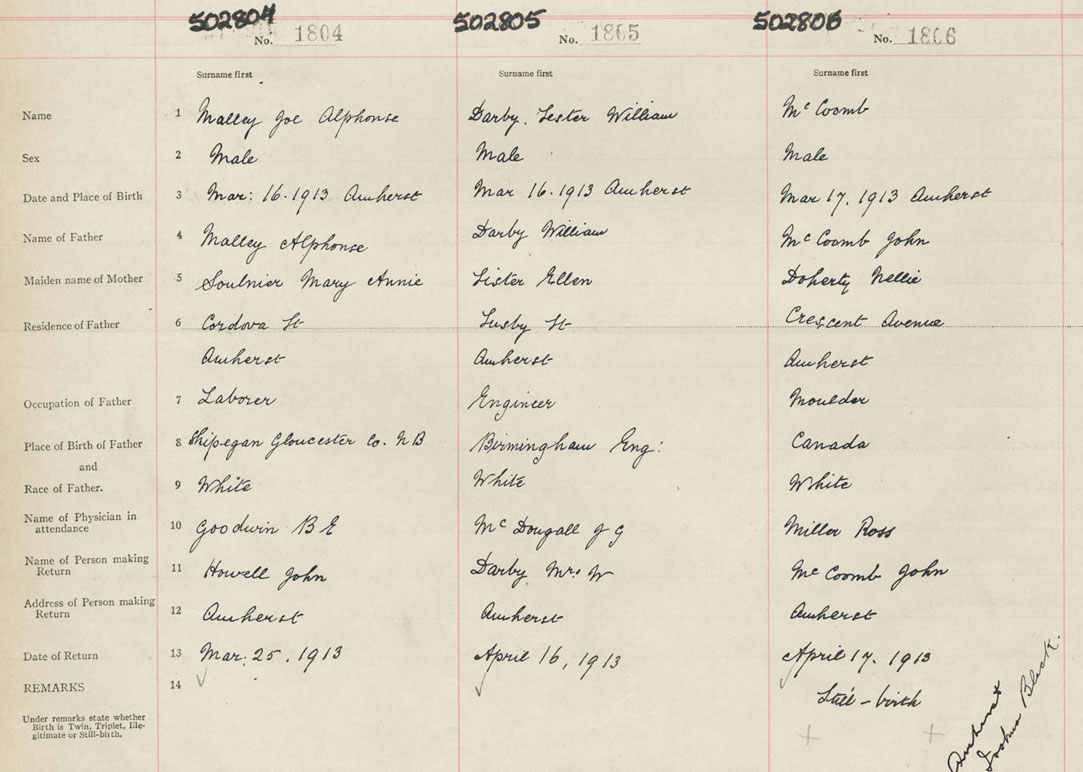 502804 502805 502806
No. 1804 No. 1805 No. 1806
Surname first Surname first Surname first
Name 1 Malley Joe Alphonse Darby. Lester William Mc Coomb
Sex 2 Male Male Male
Date and Place of Birth 3 Mar: 16. 1913 Amherst Mar 16. 1913 Amherst Mar 17. 1913 Amherst
Name of Father 4 Malley Alphonse Darby William Mc Coomb John
Maiden name of Mother 5 Soulnier Mary Annie Lister Ellen Doherty Nellie
Residence of Father 6 Cordova St Lusby St Crescent Avenue
Amherst Amherst Amherst
Occupation of Father 7 Laborer Engineer Moulder
Place of Birth of Father 8 Shipegan Gloucester Co. N B Birmingham Eng: Canada
and
Race of Father. 9 White White White
Name of Physician in
attendance 10 Goodwin B E Mc Dougall J G Miller Ross
Name of Person making
Return 11 Howell John Darby Mrs W Mc Coomb John
Address of Person making
Return 12 Amherst Amherst Amherst
Date of Return 13 Mar. 25. 1913 April 16, 1913 April 17. 1913
REMARKS 14 Still-birth
Under remarks state whether
Birth is Twin, Triplet, Ille-
gitimate or Still-birth.
Amherst
Joshua Black.